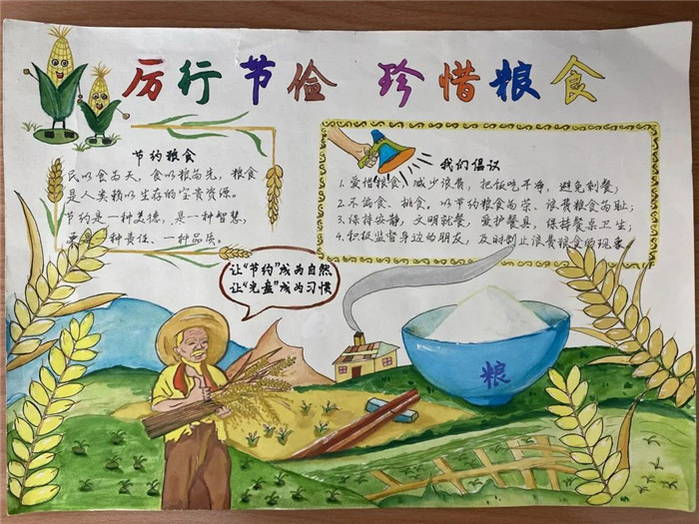 厉行节俭 珍惜粮食
节约粮食
民以食为天，食以粮为先，粮食
是人类赖以生存的宝贵资源。
节约是一种美德，是一种智慧，
更是一种责任、一种品质。
我们倡议
1.爱惜粮食，减少浪费，把饭吃干净，避免剩餐；
2.不偏食、挑食。以节约粮食为荣、浪费粮食为耻；
3.保持安静，文明就餐，爱护餐具，保持餐桌卫生；
4.积极监督身边的朋友，及时制止浪费粮食的现象
让“节约”成为自然
让“光盘”成为习惯
粮